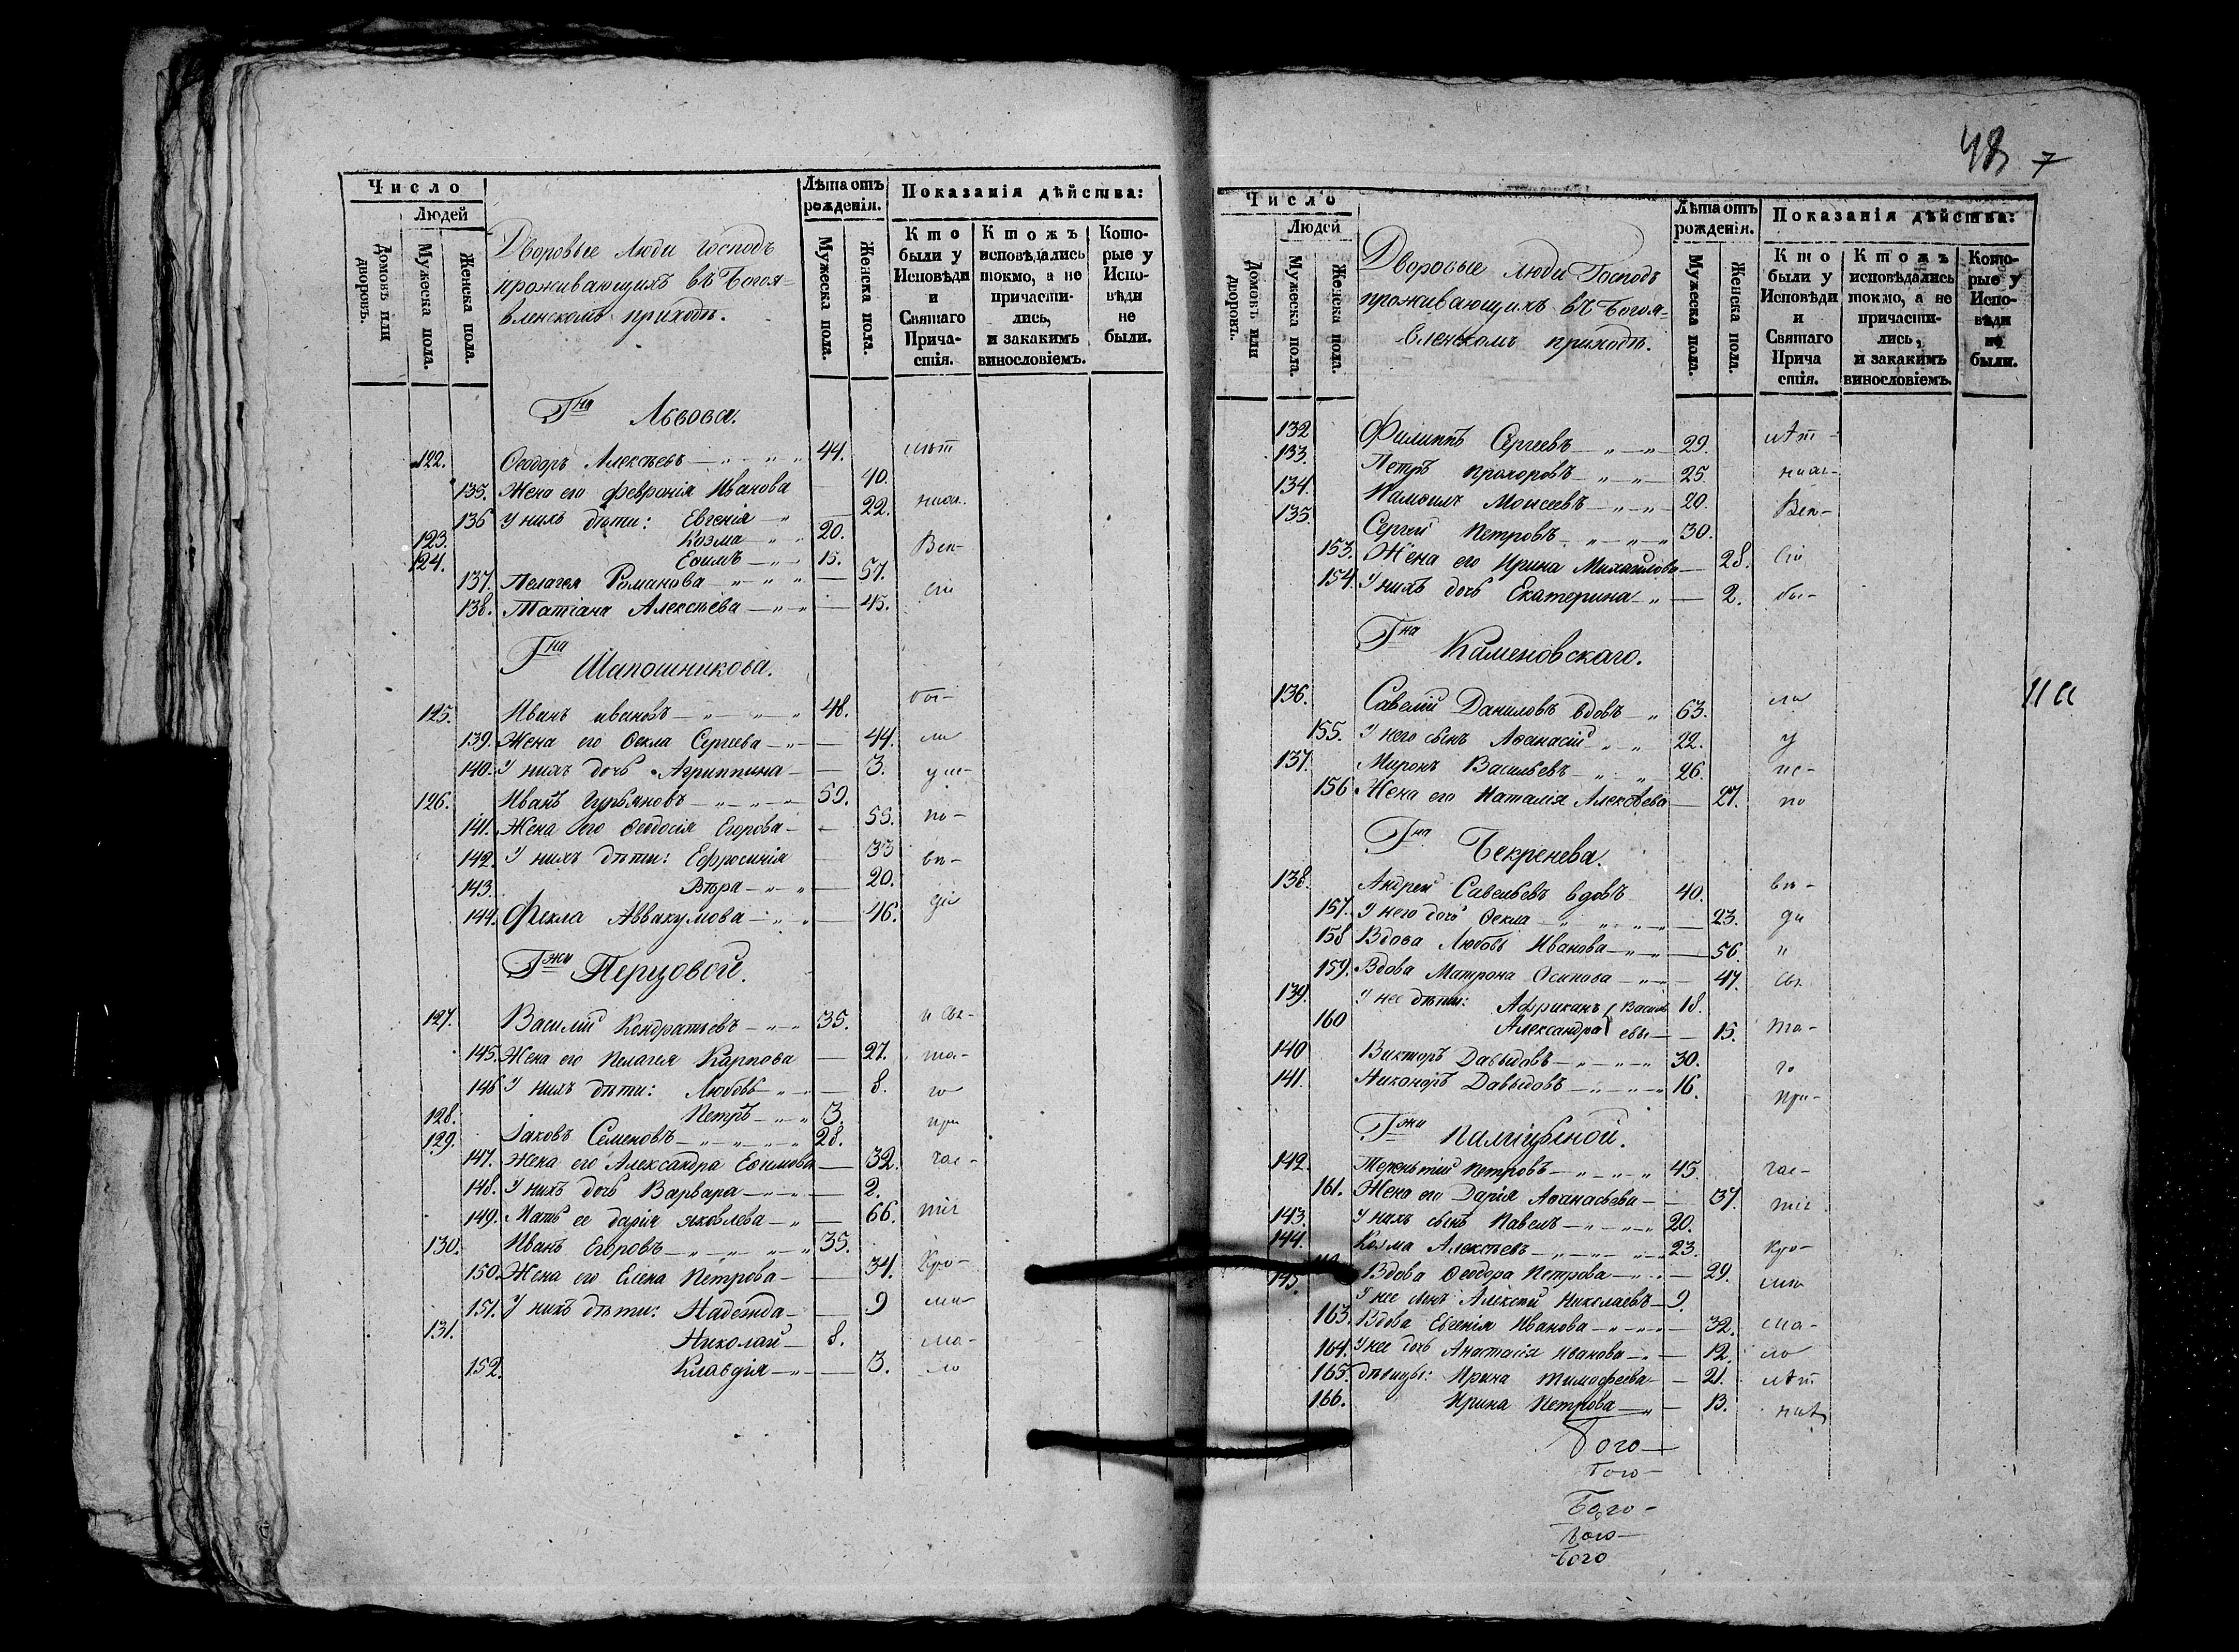 Число
Людей
Домовъ или дворовъ.
Мужеска пола.
Женска пола.
Дворовые люди господъ
проживающихъ въ Богоя-
вленскомъ приходѣ.
Лѣта отъ рожденія.
Мужеска пола.
Женска пола.
Показанія дѣйства:
Кто были у Исповѣди и Святаго Прича- стія.
Ктожъ исповѣдались токмо, а не причасти- лись, и закакимъ винословіемъ.
Кото- рые у Испо- вѣди не были.
Гна Львова.
122. Ѳеодоръ Алексѣевъ 44.
135. Жена его Февронія Иванова 40.
136 У нихъ дѣти: Евгенія 22.
123. Козма 20.
124. Ефимъ 15. Вси-
137. Пелагея Романова 57.
138. Татіана Алексѣева 45. сіи
Гна Шапошникова.
125. Иванъ Ивановъ 48. бы-
139. Жена его Ѳекла Сергеева 44. ли
140. У нихъ дочь Агриппина 3. у ис-
126. Иванъ Гурьяновъ 50.
141. Жена его Ѳеодосія Егорова 55. по-
142. У нихъ дѣти: Ефросинія 33 вѣ-
143. Вѣра 20.
144. Фекла Аввакумова 46. ди
Гжи Перцовой.
127. Василій Кондратьевъ 35. и Св-
145. Жена его Пелагея Карпова 27. та-
146 У нихъ дѣти: Любовь 8. го
128. Петръ 3. при
129. Іаковъ Семеновъ 28.
147. Жена его Александра Ефимова 32. час-
148. У нихъ дочь Варвара 2.
149. Мать ее Дарія Яковлева 66. тія
130. Иванъ Егоровъ 35.
150. Жена его Елена Петрова 34. Кро-
151. У нихъ дѣти: Надежда 9 мѣ
131. Николай 8. ма-
152. Клавдія 3. ло
48 7
Число
Людей
Домовъ или дворовъ.
Мужеска пола.
Женска пола.
Дворовые люди Господъ
проживающихъ въ Богоя-
вленскомъ приходѣ.
Лѣта отъ рожденія.
Мужеска пола.
Женска пола.
Показанія дѣйства:
Кто были у Исповѣди и Святаго Прича стія.
Ктожъ исповѣдались токмо, а не причасти- лись, и закакимъ винословіемъ.
Кото- рые у Испо- вѣди не были.
132 Филиппъ Сергеевъ 29. лѣт-
133. Петръ Прохоровъ 25.
134. Памфилъ Моисеевъ 20. Вси-
135. Сергей Петровъ 30.
153. Жена его Ирина Михайлова 28. сіи
154. У нихъ дочь Екатерина 2. бы-
Гна Каменовскаго.
136. Савелій Даниловъ вдовъ 63. ли
155. У него сынъ Афанасій 22. у
137. Миронъ Васильевъ 26. ис-
156 Жена его Наталія Алексѣева 27. по
Гна Бекренева.
138. Андрей Савельевъ вдовъ 40. вѣ-
157. У него дочь Ѳекла 23. ди
158 Вдова Любовь Иванова 56. и
159. Вдова Матрона Осипова 47. Св.
139. У нее дѣти: Африканъ Василь 18.
160 Александра евы 15. та-
140 Викторъ Давыдовъ 30. го
141. Никоноръ Давыдовъ 16. при-
Гжи Палицыной.
142. Терентий Петровъ 45. час-
161. Жена его Дарія Афанасьева 37. тія
143. У нихъ сынъ Павелъ 20.
144. Козма Алексѣевъ 23. Кро-
Вдова Ѳеодора Петрова 29. мѣ
145. У нее сынъ Алексѣй Николаевъ 9.
163. Вдова Евгенія Иванова 32. ма-
164. У нее дочь Анастасія Иванова 12. ло
165. Дѣвицы: Ирина Тимофеева 21. лѣт
166. Ирина Петрова 13.
Бого-
Бого-
Бого-
Бого-
Бого